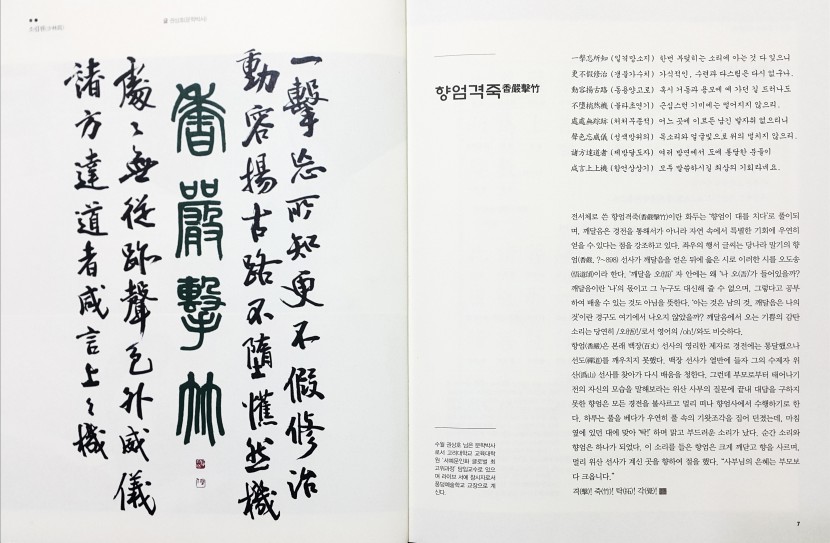 一擊忘所知更不假修治
動容揚古路不墮憔然機
香嚴擊竹
處〻無從跡聲色外威儀
諸方達道者咸言上〻機
향엄격죽香嚴擊竹
一擊忘所知 (일격망소지) 한번 부딪히는 소리에 아는 것 다 잊으니
更不假修治 (갱불가수치) 가식적인, 수련과 다스림은 다시 없구나.
動容揚古路 (동용양고로) 혹시 거동과 용모에 예 가던 길 드러나도
不墮悄然機 (불타초연기) 근심스런 기미에는 떨어지지 않으리.
處處無踪跡 (처처무종적) 어느 곳에 이르든 남긴 발자취 없으려니
聲色忘威儀 (성색망위의) 목소리와 얼굴빛으로 위의 떨치지 않으리.
諸方達道者 (제방달도자) 여러 방면에서 도에 통달한 분들이
咸言上上機 (함언상상기) 모두 말씀하시길 최상의 기회라네요.
전서체로 쓴 향엄격죽(香嚴擊竹)이란 화두는 '향엄이 대를 치다'로 풀이되
며, 깨달음은 경전을 통해서가 아니라 자연 속에서 특별한 기회에 우연히
얻을 수 있다는 점을 강조하고 있다. 좌우의 행서 글씨는 당나라 말기의 향
엄(香嚴, ?~898) 선사가 깨달음을 얻은 뒤에 읊은 시로 이러한 시를 오도송
(悟道頌)이라 한다. '깨달을 오(悟)' 자 안에는 왜 '나 오(吾)'가 들어있을까?
깨달음이란 '나'의 몫이고 그 누구도 대신해 줄 수 없으며, 그렇다고 공부
하여 배울 수 있는 것도 아님을 뜻한다. '아는 것은 남의 것, 깨달음은 나의
것'이란 경구도 여기에서 나오지 않았을까? 깨달음에서 오는 기쁨의 감탄
소리는 당연히 /오(悟)!/로서 영어의 /oh!/와도 비슷하다.
향엄(香嚴)은 본래 백장(百丈) 선사의 영리한 제자로 경전에는 통달했으나
선도(禪道)를 깨우치지 못했다. 백장 선사가 열반에 들자 그의 수제자 위
산(潙山) 선사를 찾아가 다시 배움을 청한다. 그런데 부모로부터 태어나기
전의 자신의 모습을 말해보라는 위산 사부의 질문에 끝내 대답을 구하지
못한 향엄은 모든 경전을 불사르고 멀리 떠나 향엄사에서 수행하기로 한
다. 하루는 풀을 베다가 우연히 풀 속의 기왓조각을 집어 던졌는데, 마침
옆에 있던 대에 맞아 '탁!' 하며 맑고 부드러운 소리가 났다. 순간 소리와
향엄은 하나가 되었다. 이 소리를 들은 향엄은 크게 깨닫고 향을 사르며,
멀리 위산 선사가 계신 곳을 향하여 절을 했다. "사부님의 은혜는 부모보
다 크옵니다."
격(擊)! 죽(竹)! 탁(拓)! 각(覺)!
수월 권상호 님은 문학박사
로서 고려대학교 교육대학
원 '서예문인화 글로벌 최
고위과정' 담임교수로 있으
며 라이브 서예 창시자로서
풍덩예술학교 교장으로 계
신다.
7